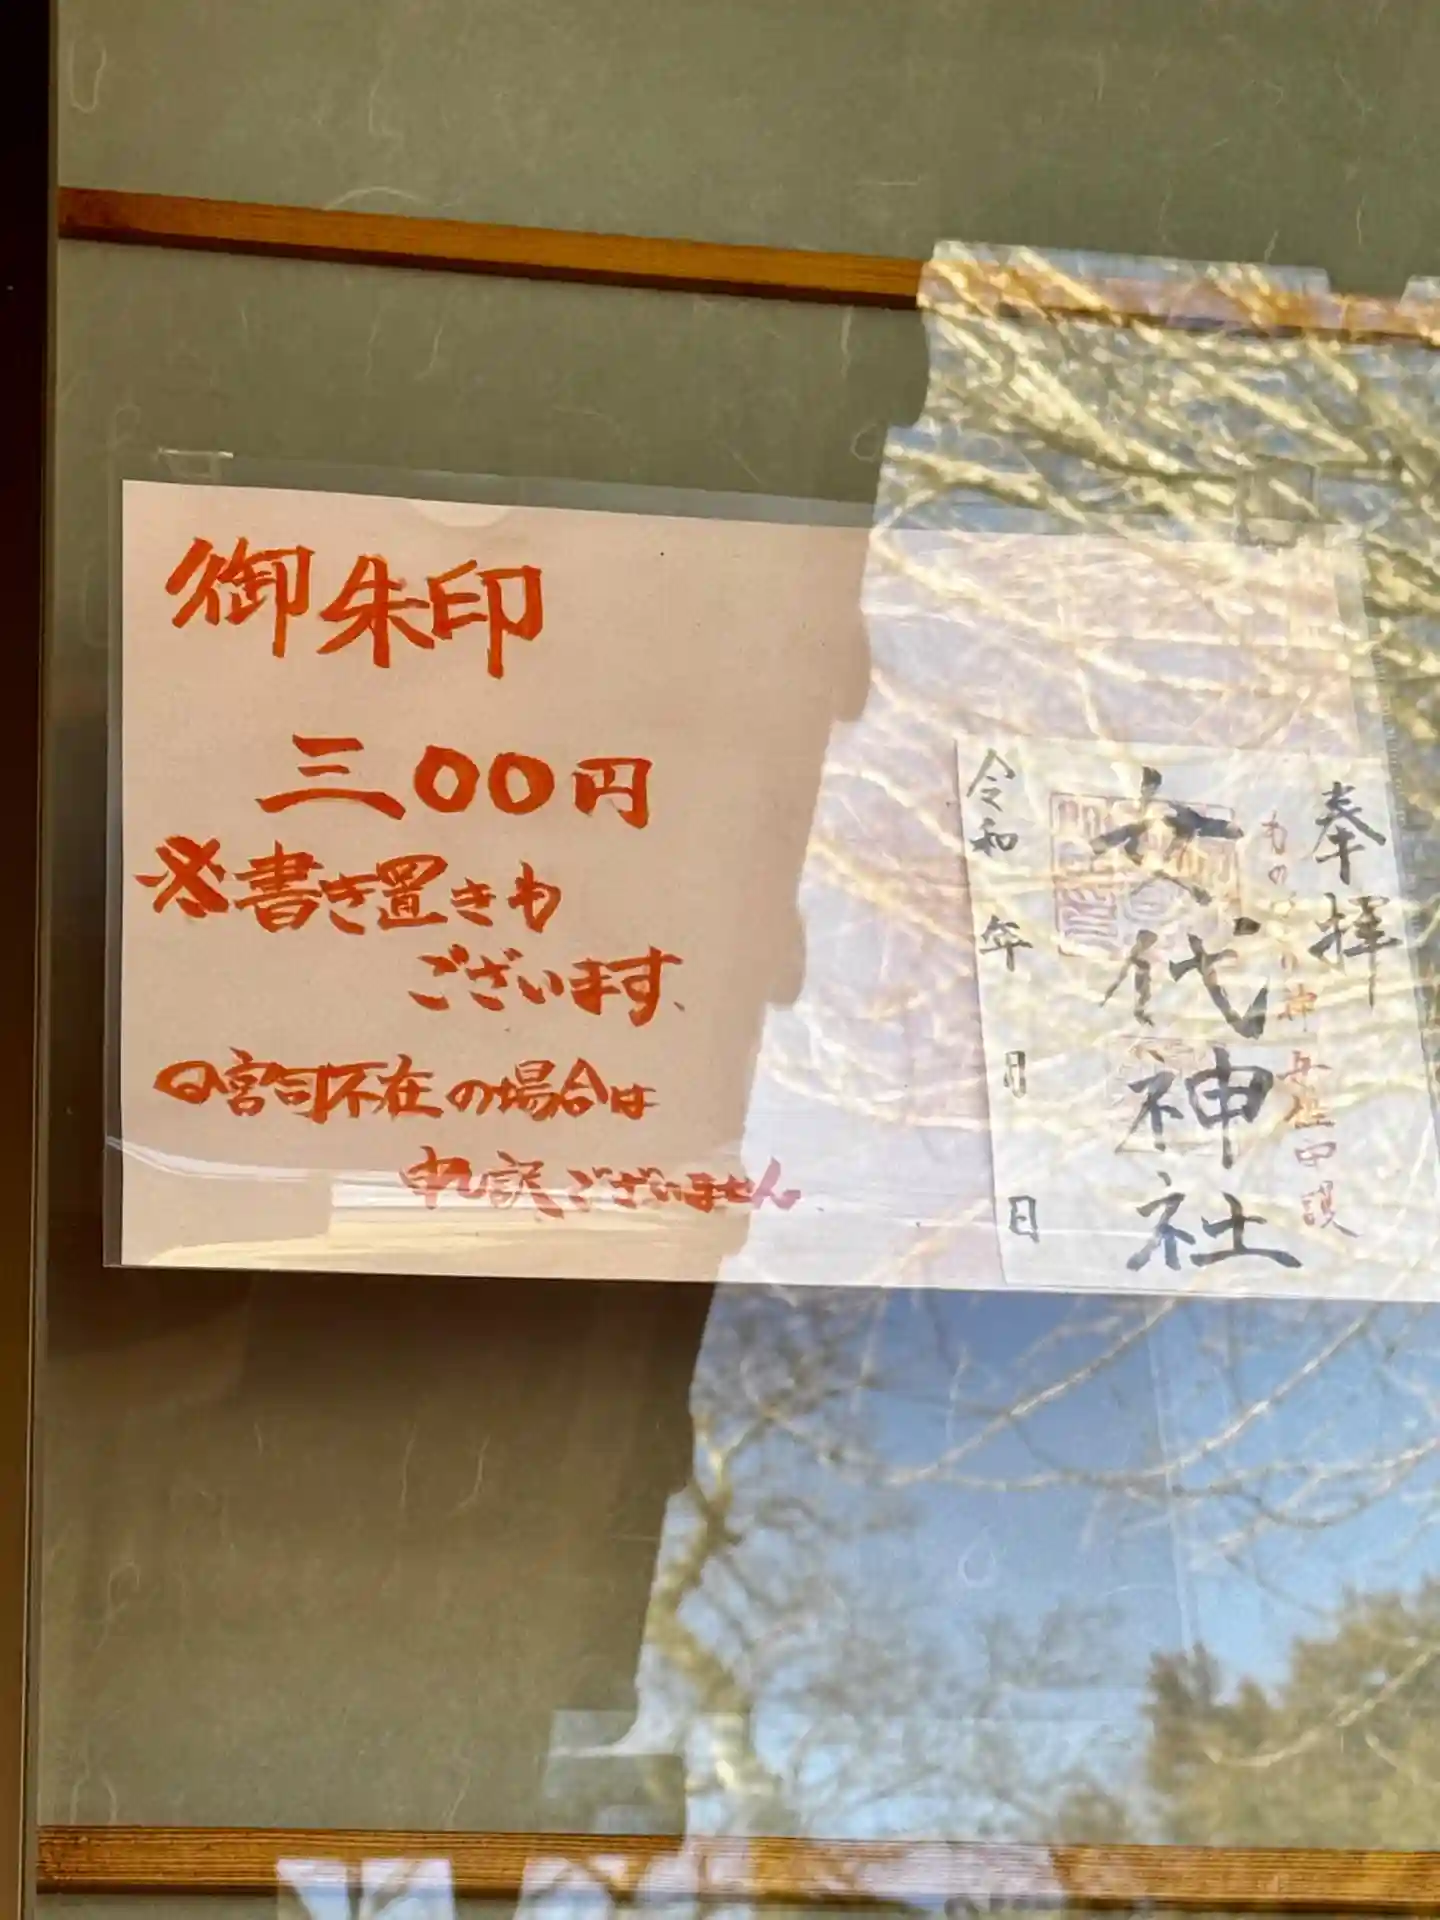 御朱印
三〇〇円
※書き置きも
ございます、
宮司不在の場合は
申し訳ございません
奉拝
女代神社
令和 年 月 日